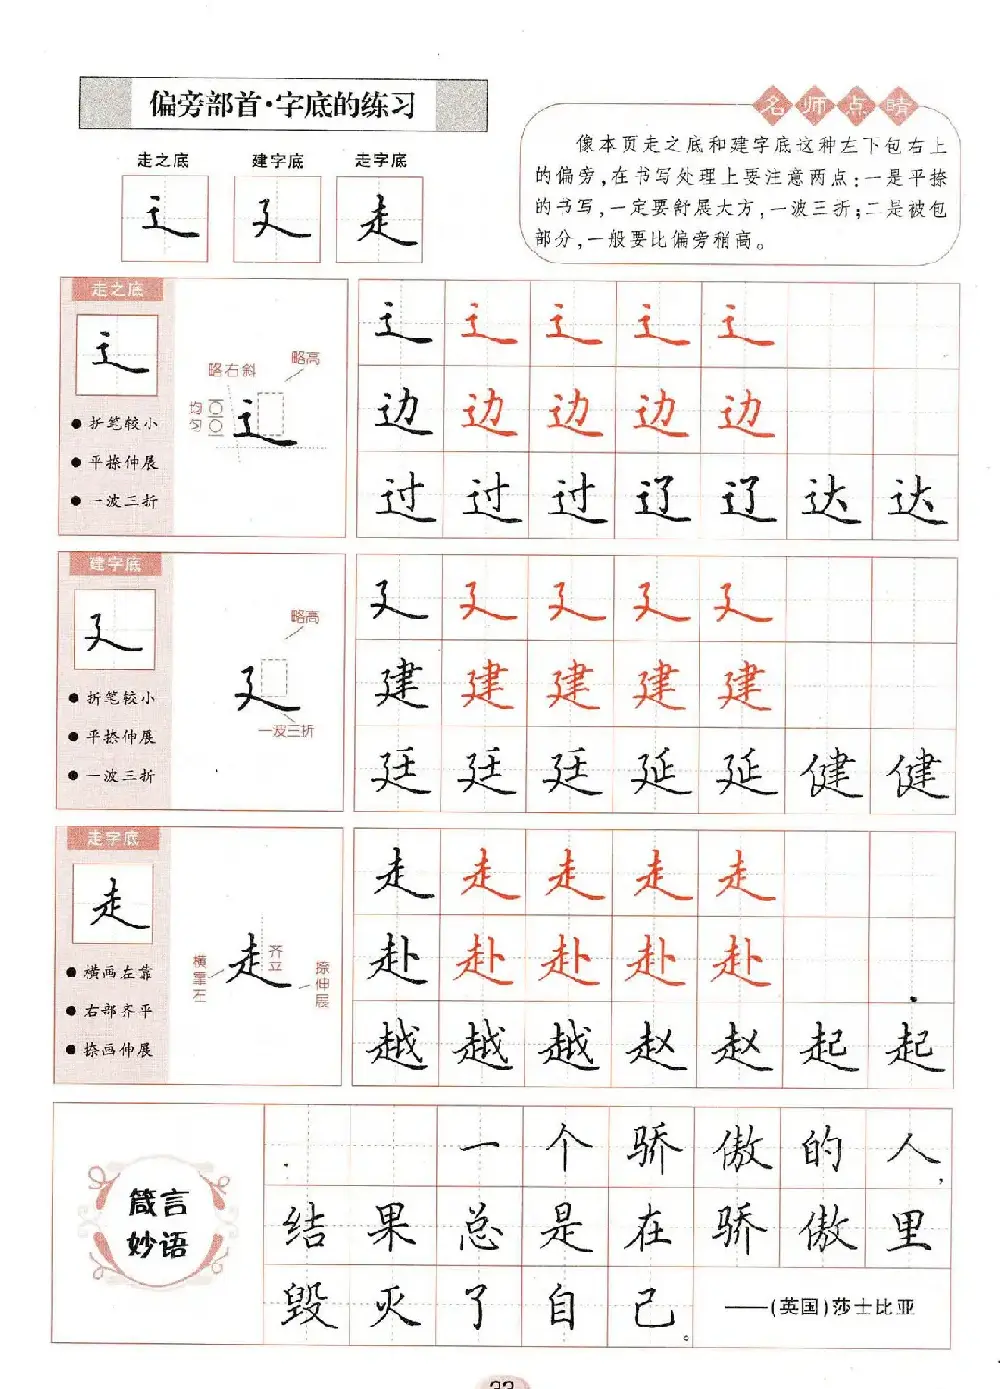 偏旁部首·字底的练习
名师点睛
走之底 建字底 走字底
辶 廴 走
像本页走之底和建字底这种左下包右上
的偏旁,在书写处理上要注意两点:一是平捺
的书写,一定要舒展大方,一波三折;二是被包
部分,一般要比偏旁稍高。
走之底
辶
折笔较小
平捺伸展
一波三折
略高
略右斜
均匀
辶
辶 辶 辶 辶 辶
边 边 边 边 边
过 过 过 辽 辽 达 达
建字底
廴
折笔较小
平捺伸展
一波三折
略高
廴
一波三折
廴 廴 廴 廴 廴
建 建 建 建 建
廷 廷 廷 延 延 健 健
走字底
走
横画左靠
右部齐平
捺画伸展
横靠左
走
齐立
捺伸展
走 走 走 走 走
赴 赴 赴 赴 赴
越 越 越 赵 赵 起 起
箴言
妙语
一个骄傲的人,
结果总是在骄傲里
毁灭了自己。
——(英国)莎士比亚
33